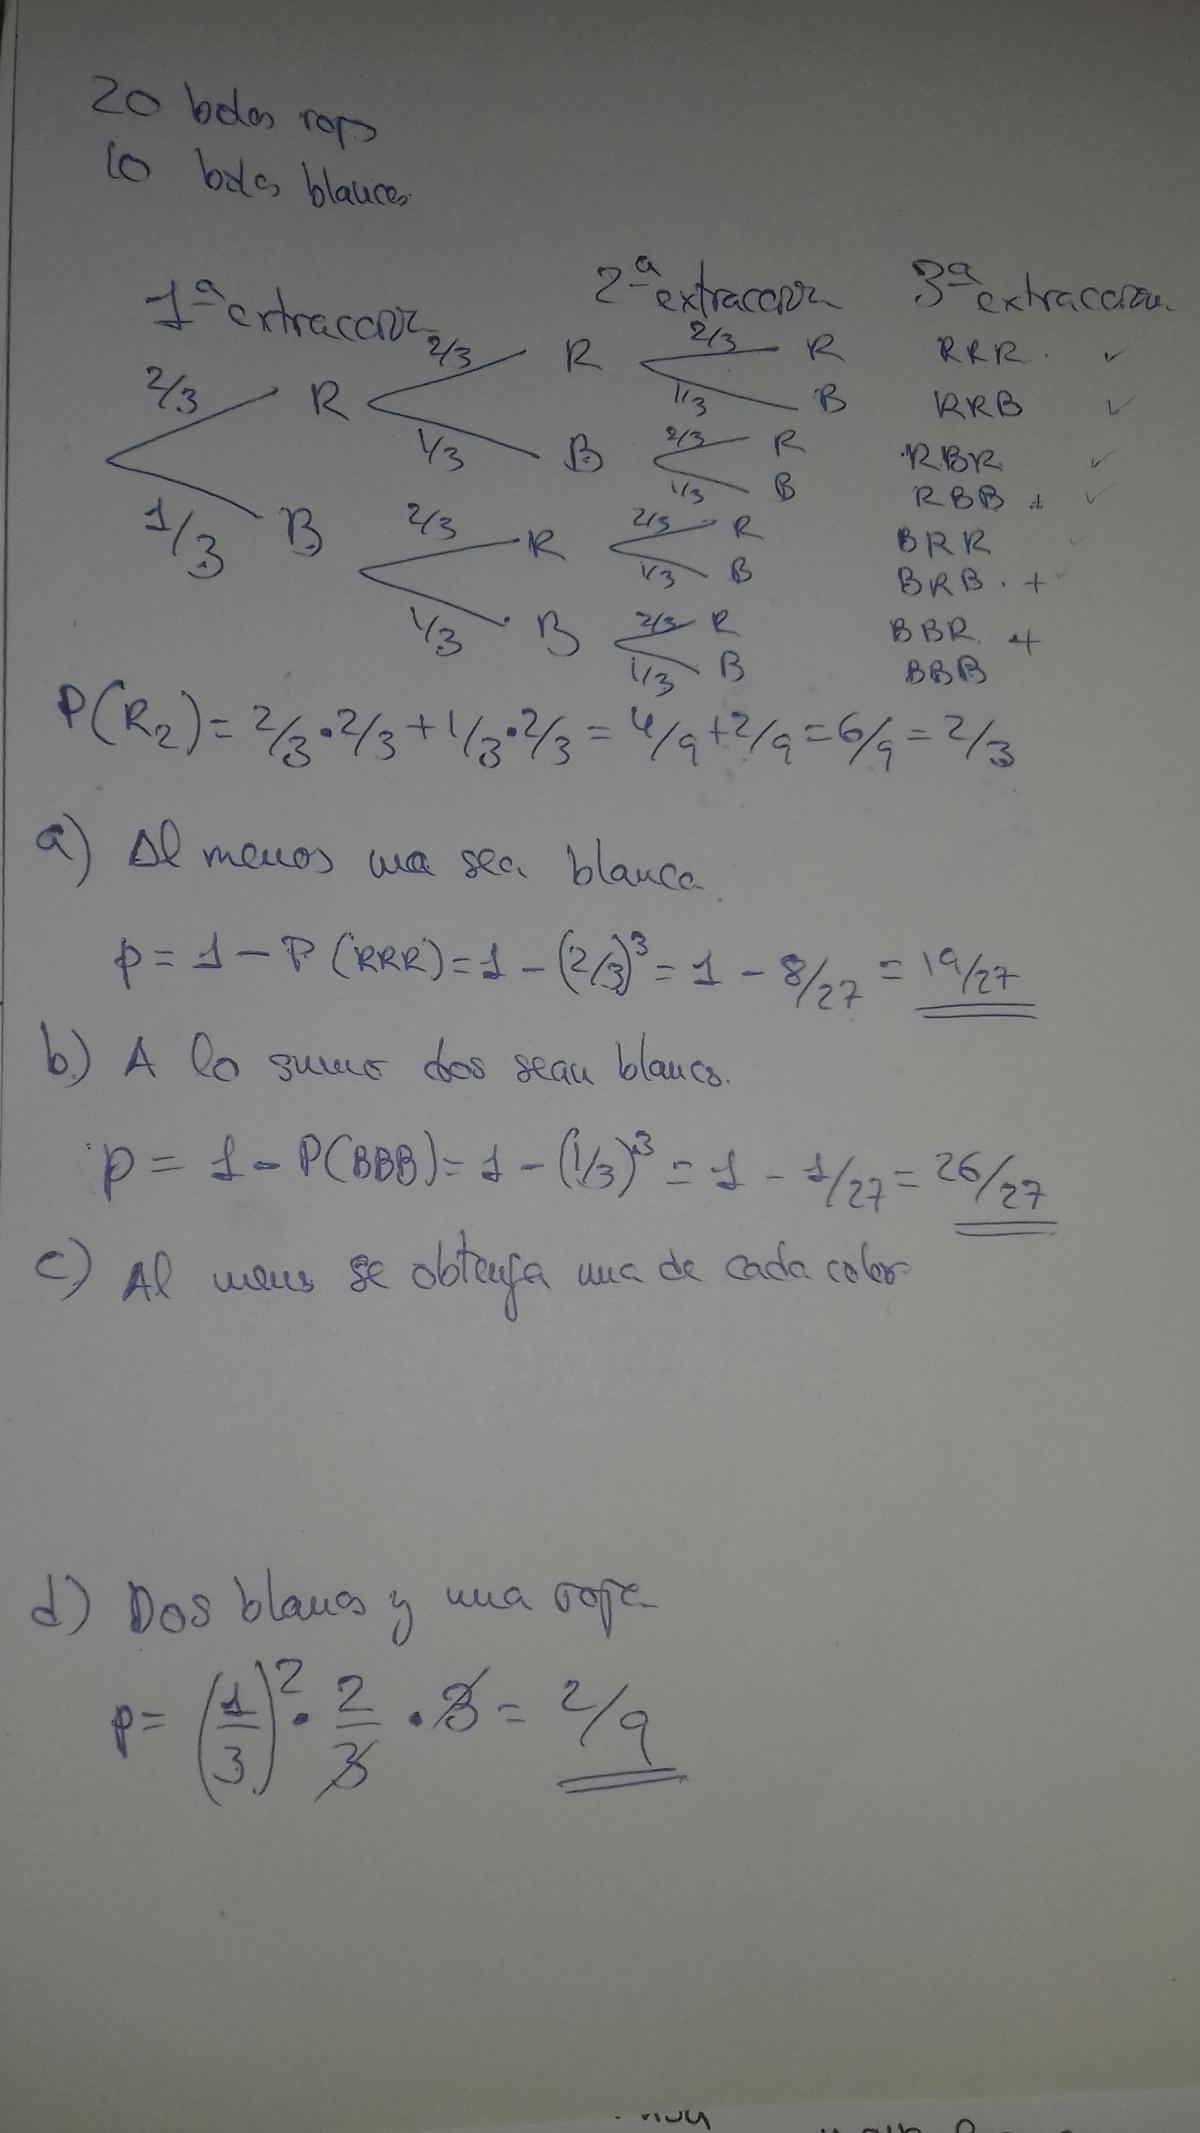 20 bolas rojas
10 bolas blancas
1ª extracción 2ª extracción 3ª extracción
2/3 R 2/3 R 2/3 R RRR. ✓
1/3 B RRB ✓
1/3 B 2/3 R RBR ✓
1/3 B RBB + ✓
1/3 B 2/3 R 2/3 R BRR ✓
1/3 B BRB. + ✓
1/3 B 2/3 R BBR +
1/3 B BBB
P(R₂) = 2/3·2/3 + 1/3·2/3 = 4/9 + 2/9 = 6/9 = 2/3
a) Al menos una sea blanca.
p = 1 - P(RRR) = 1 - (2/3)³ = 1 - 8/27 = 19/27
b) A lo sumo dos sean blancas.
p = 1 - P(BBB) = 1 - (1/3)³ = 1 - 1/27 = 26/27
c) Al menos se obtenga una de cada color
d) Dos blancas y una roja
p = (1/3)² · 2/3 · 3 = 2/9